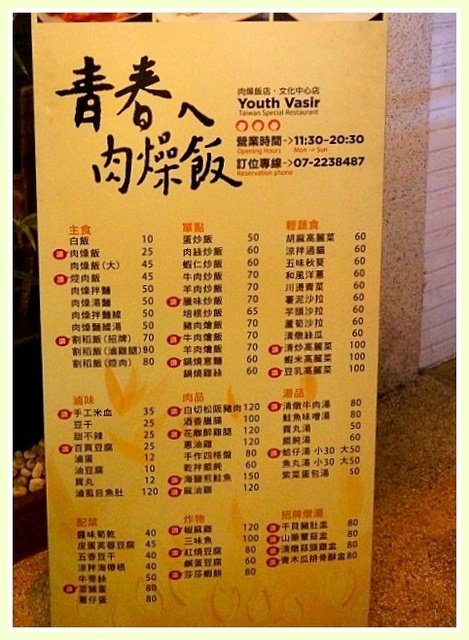 青春へ
肉燥飯
肉燥飯店・文化中心店
Youth Vasir
Taiwan Special Restaurant
營業時間->11:30-20:30
Opening Hours Mon -> Sun
訂位專線->07-2238487
Reservation phone
主食
白飯 10
肉燥飯 25
肉燥飯(大) 45
焢肉飯 45
肉燥拌麵 50
肉燥湯麵 50
肉燥拌麵線 50
肉燥麵線湯 50
割稻飯(招牌) 70
割稻飯(滷雞腿) 80
割稻飯(焢肉) 80
單點
蛋炒飯 50
肉絲炒飯 60
蝦仁炒飯 60
牛肉炒飯 60
羊肉炒飯 60
臘味炒飯 60
培根炒飯 65
豬肉燴飯 60
牛肉燴飯 60
羊肉燴飯 60
鍋燒意麵 60
鍋燒雞絲 60
輕蔬食
胡麻高麗菜 60
涼拌過貓 60
五味秋葵 60
和風洋蔥 60
川燙青菜 60
薯泥沙拉 60
芋頭沙拉 60
蘆筍沙拉 60
清燉絲瓜 60
清炒高麗菜 100
蝦米高麗菜 100
豆乳高麗菜 100
滷味
手工米血 35
豆干 25
甜不辣 25
百頁豆腐 25
滷蛋 12
油豆腐 10
貢丸 12
滷虱目魚肚 120
肉品
白切松阪豬肉 120
酒香臘腸 100
花雕醉雞腿 120
蔥油雞 120
手作四格盤 80
乾拌餛飩 60
海鹽煎鮭魚 150
麻油雞 120
湯品
清燉牛肉湯 80
鮭魚味噌湯 80
貢丸湯 50
餛飩湯 60
蛤仔湯 小30 大50
魚丸湯 小30 大50
紫菜蛋包湯 50
配菜
醬味筍乾 40
皮蛋芙蓉豆腐 45
五香豆干 40
涼拌海帶根 40
牛蒡絲 50
菜脯蛋 80
蔥仔蛋 80
炸物
椒麻雞 120
三味魚 100
紅燒豆腐 80
鹹蛋豆腐 60
莎莎蝦餅 80
招牌燉湯
干貝豬肚盅 80
山藥蕈菇盅 80
清燉蒜頭雞盅 80
青木瓜排骨酥盅 80